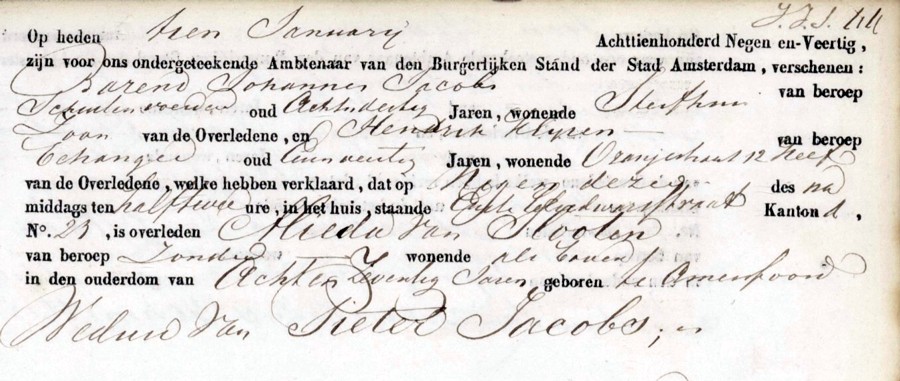 Op heden tien January Achttienhonderd Negen en-Veertig,
zijn voor ons ondergeteekende Ambtenaar van den Burgerlijken Stand der Stad Amsterdam, verschenen:
Barend Johannes Jacobs van beroep
oud Achtendertig Jaren, wonende
Zoon van de Overledene, en Hendrik van beroep
oud Jaren, wonende Oranjestraat 12 Neef
van de Overledene, welke hebben verklaard, dat op Negen dezer des na
middags ten half twee ure, in het huis, staande Kanton
No. 23, is overleden Alieda van Slooten
van beroep Zonder wonende als boven
in den ouderdom van Acht en Zeventig Jaren geboren te Amersfoord
Weduwe van Pieter Jacobs;